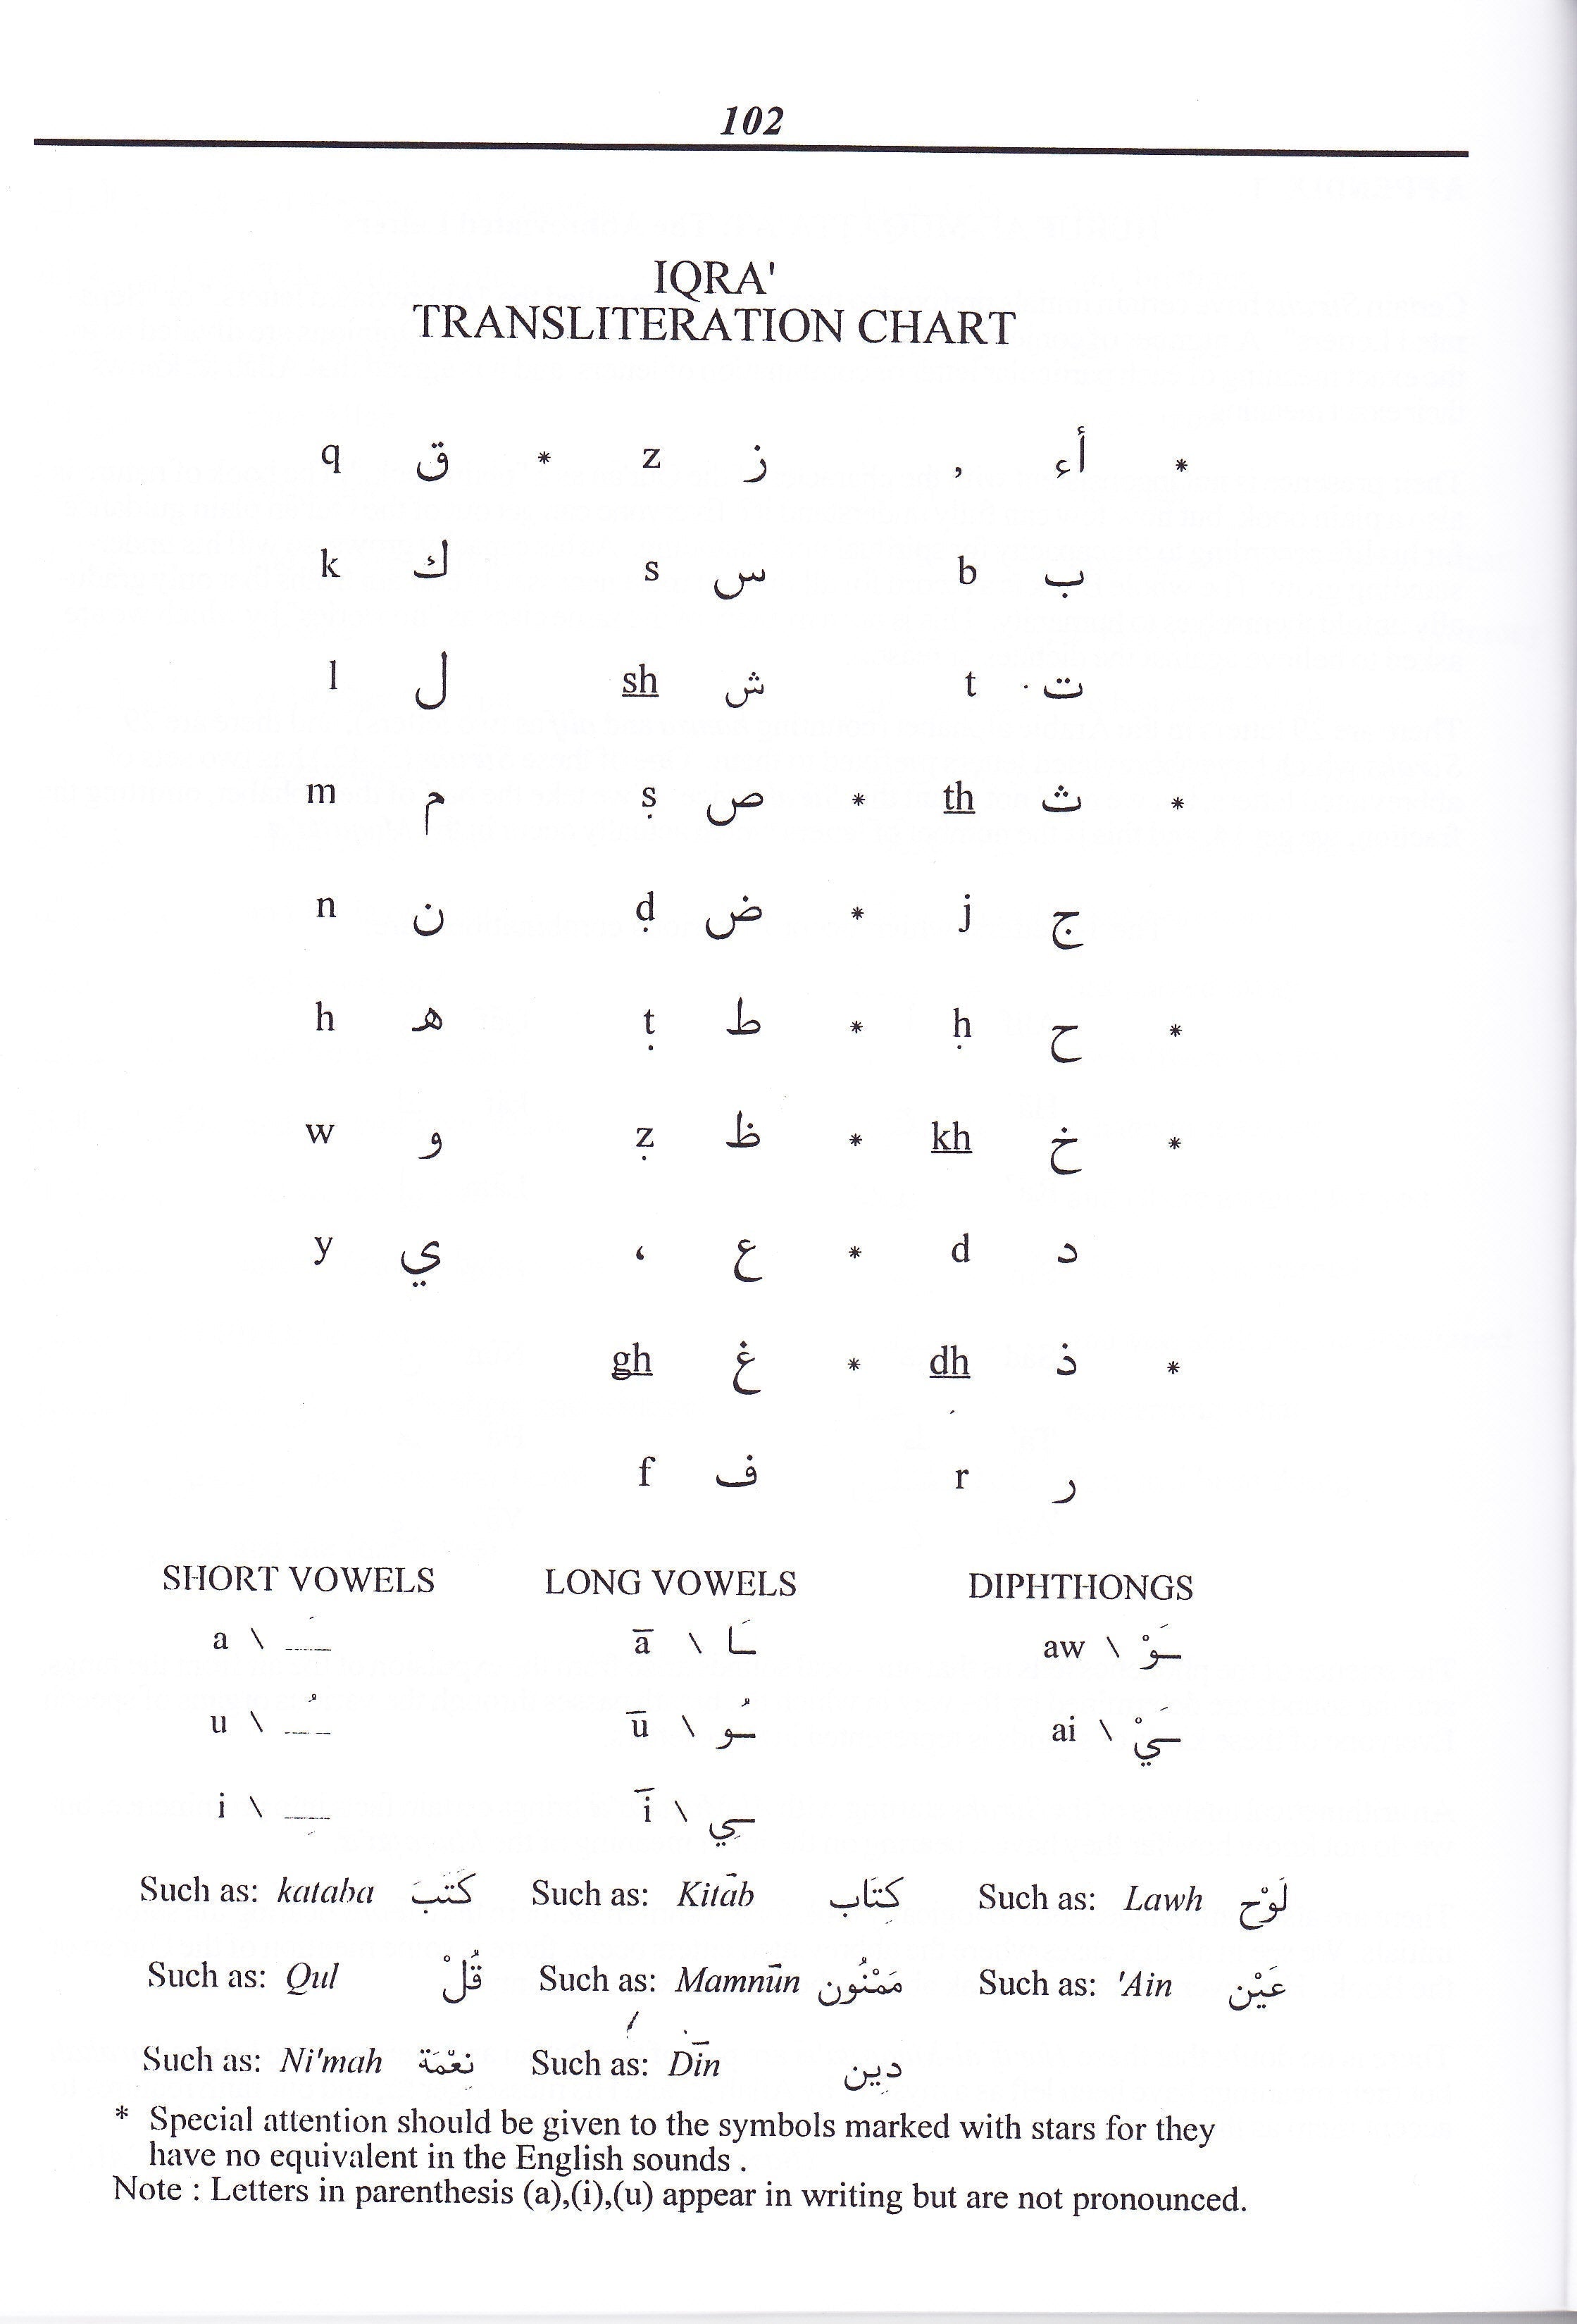 102
IQRA'
TRANSLITERATION CHART
q ق * z ز , أء *
k ك s س b ب
l ل sh ش t ت
m م ṣ ص * th ث *
n ن ḍ ض * j ج
h ه ṭ ط * ḥ ح *
w و ẓ ظ * kh خ *
y ي ‘ ع * d د
gh غ * dh ذ *
f ف r ر
SHORT VOWELS LONG VOWELS DIPHTHONGS
a \ ـَ ā \ ـَا aw \ ـَوْ
u \ ـُ ū \ ـُو ai \ ـَيْ
i \ ـِ ī \ ـِي
Such as: kataba كَتَبَ Such as: Kitāb كِتَاب Such as: Lawh لَوْح
Such as: Qul قُلْ Such as: Mamnūn مَمْنُون Such as: 'Ain عَيْن
Such as: Ni'mah نِعْمَة Such as: Dīn دِين
* Special attention should be given to the symbols marked with stars for they
have no equivalent in the English sounds .
Note : Letters in parenthesis (a),(i),(u) appear in writing but are not pronounced.